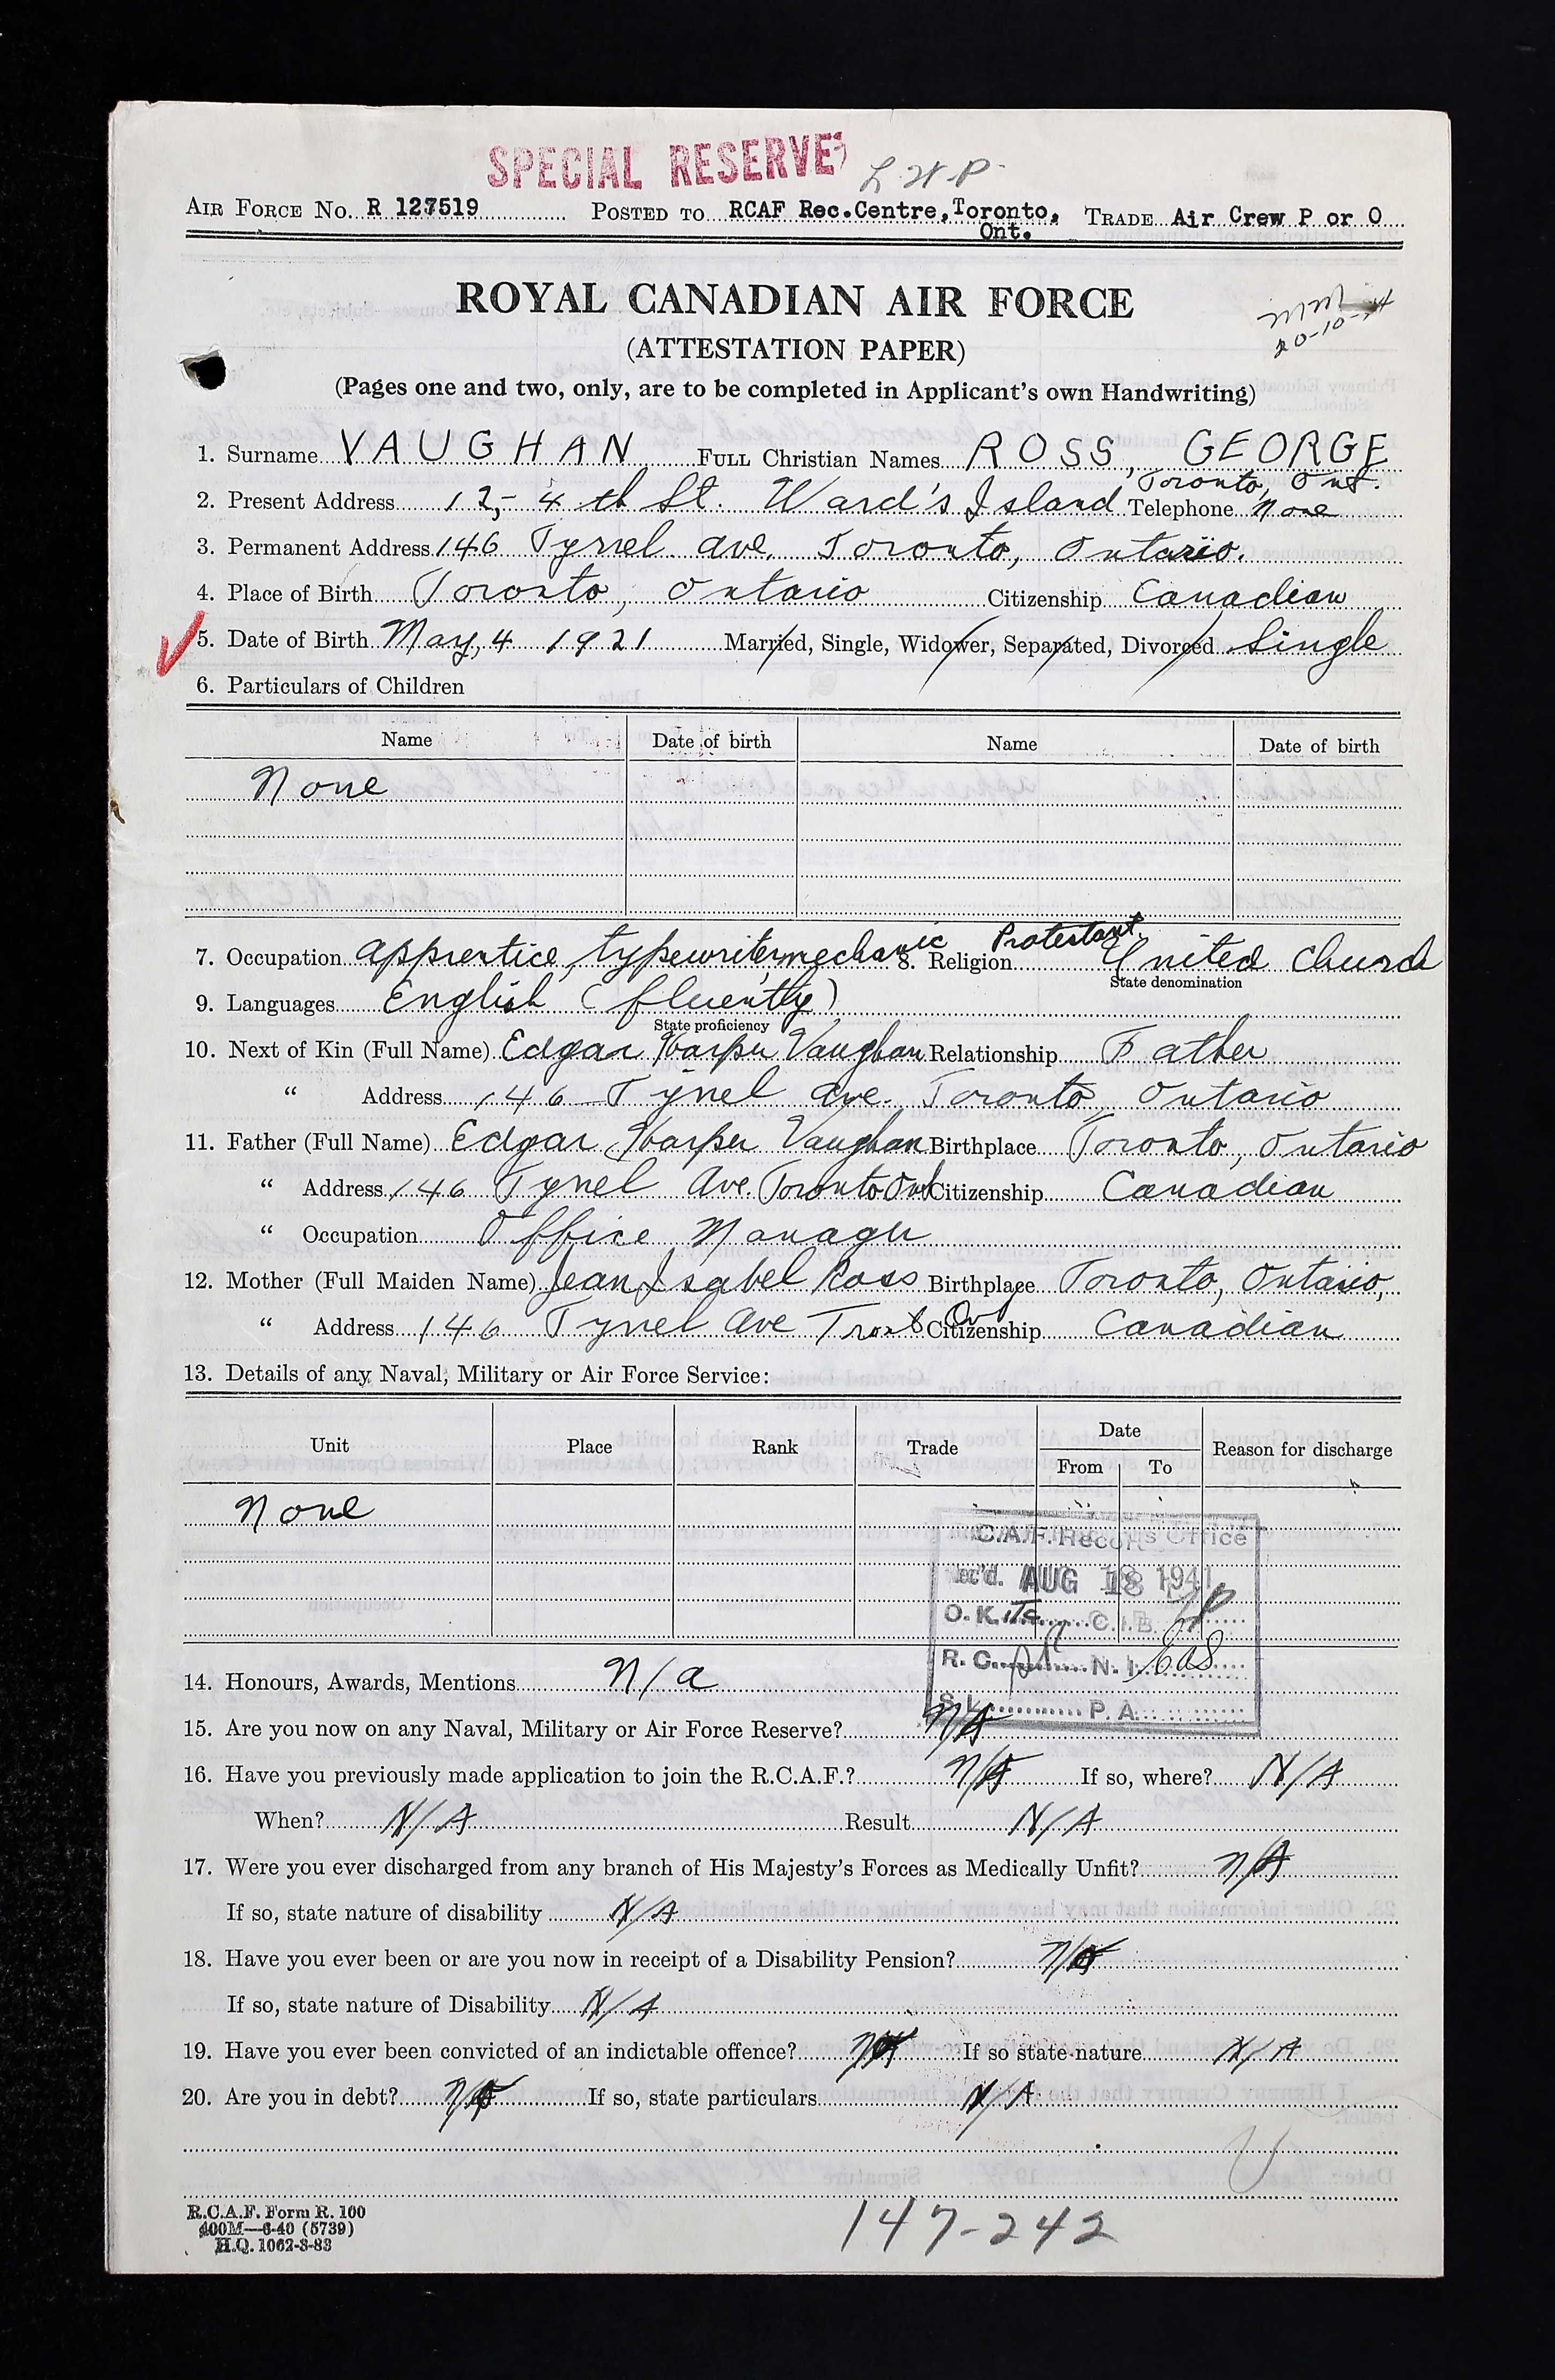 SPECIAL RESERVE
AIR FORCE No. R 127519 POSTED TO RCAF Rec.Centre,Toronto, Ont. TRADE Air Crew P or O
ROYAL CANADIAN AIR FORCE
(ATTESTATION PAPER)
20-10-
(Pages one and two, only, are to be completed in Applicant's own Handwriting)
1. Surname VAUGHAN FULL Christian Names ROSS, GEORGE
2. Present Address 12,- 4th St. Ward's Island Toronto, Ont. Telephone None
3. Permanent Address 146 Tyrrel Ave. Toronto, Ontario.
4. Place of Birth Toronto, Ontario Citizenship Canadian
5. Date of Birth May, 4 1921 Married, Single, Widower, Separated, Divorced Single
6. Particulars of Children
Name Date of birth Name Date of birth
None
7. Occupation apprentice, typewriter mechanic 8. Religion Protestant United Church
State denomination
9. Languages English (fluently)
State proficiency
10. Next of Kin (Full Name) Edgar Harper Vaughan Relationship Father
" Address 146 Tyrrel Ave. Toronto, Ontario
11. Father (Full Name) Edgar Harper Vaughan Birthplace Toronto, Ontario
" Address 146 Tyrrel Ave. Toronto Ont Citizenship Canadian
" Occupation Office Manager
12. Mother (Full Maiden Name) Jean Isabel Ross Birthplace Toronto, Ontario,
" Address 146 Tyrrel Ave Citizenship Canadian
13. Details of any Naval, Military or Air Force Service:
Unit Place Rank Trade Date From To Reason for discharge
None
C.A.F. Records Office
Rec'd. AUG 18 1941
O.K. C.I.B.
R.C. N.I.
S.L. P.A.
14. Honours, Awards, Mentions N/a
15. Are you now on any Naval, Military or Air Force Reserve?
16. Have you previously made application to join the R.C.A.F.? If so, where? N/A
When? N/A Result N/A
17. Were you ever discharged from any branch of His Majesty's Forces as Medically Unfit?
If so, state nature of disability N/A
18. Have you ever been or are you now in receipt of a Disability Pension?
If so, state nature of Disability N/A
19. Have you ever been convicted of an indictable offence? If so state nature N/A
20. Are you in debt? If so, state particulars N/A
R.C.A.F. Form R. 100
400M—6-40 (5739)
H.Q. 1062-3-83
147-242